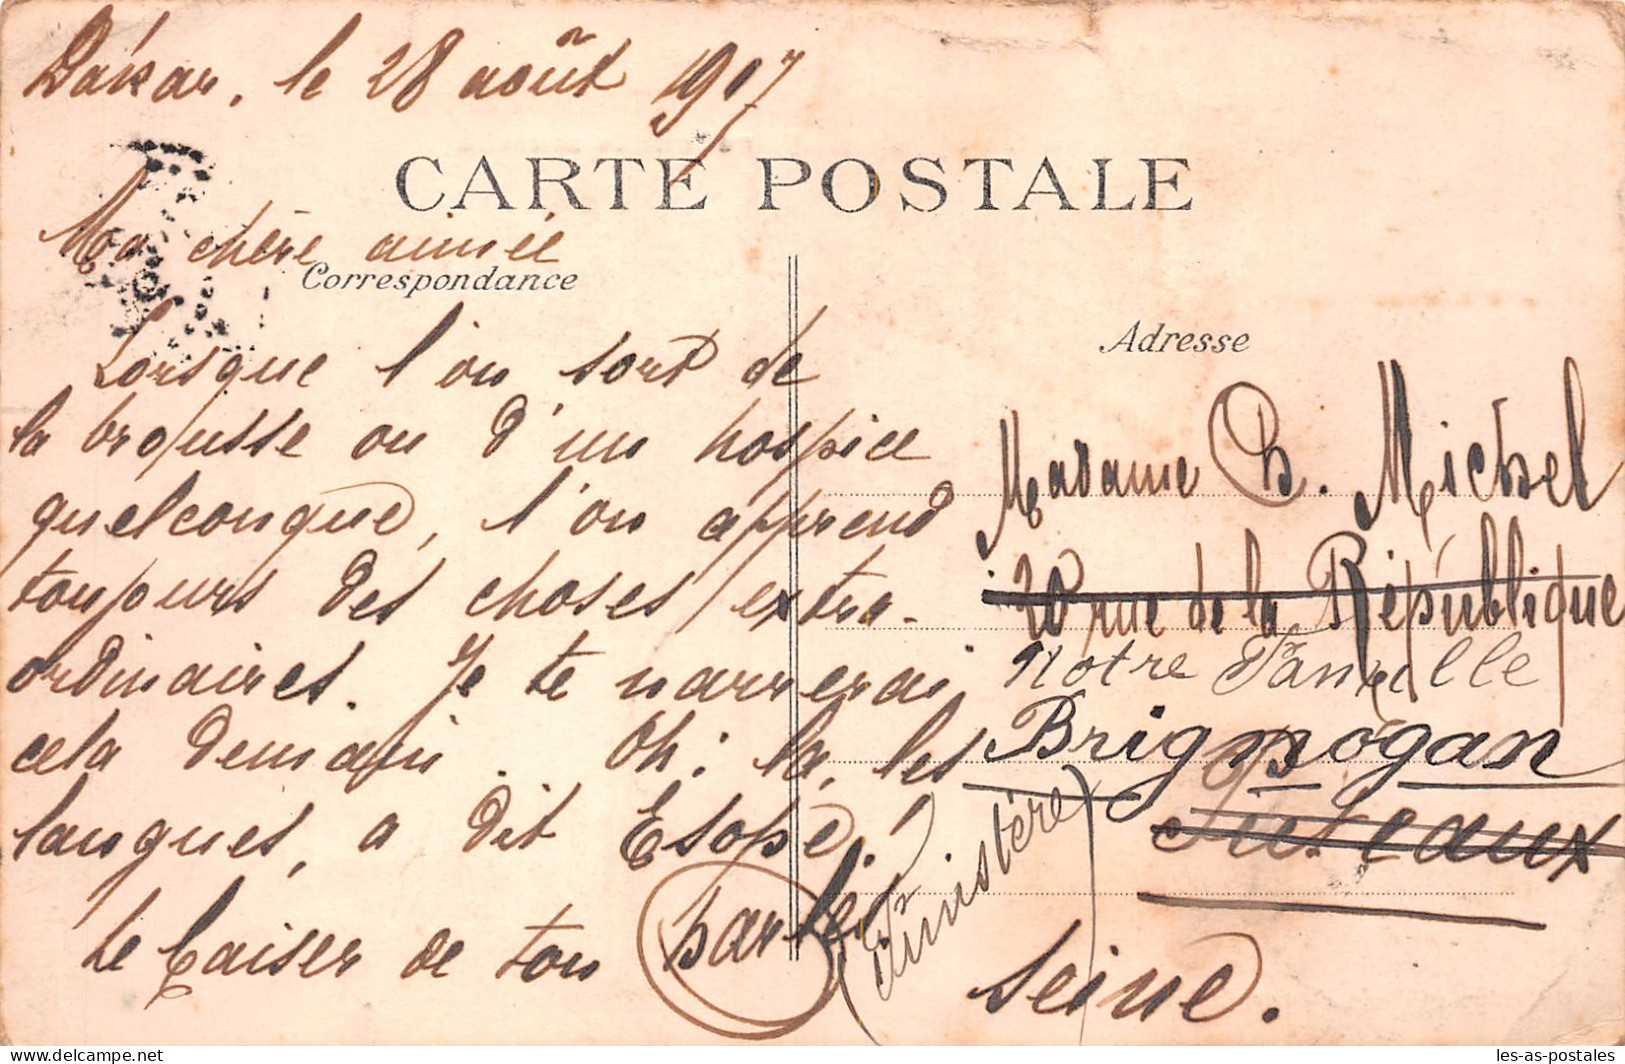 Dakar, le 28 août 1907
CARTE POSTALE
Ma chère aimée
Correspondance
Lorsque l'on sort de
la brousse ou d'un hospice
quelconque, l'on apprend
toujours des choses extra-
ordinaires. Je te narrerai
cela demain. Oh! la, les
langues, a dit Esope!
Le baiser de ton
Adresse
Madame B. Michel
20 rue de la République
Notre Famille
Brignogan
Puteaux
(Finistère)
Seine.
les-as-postales